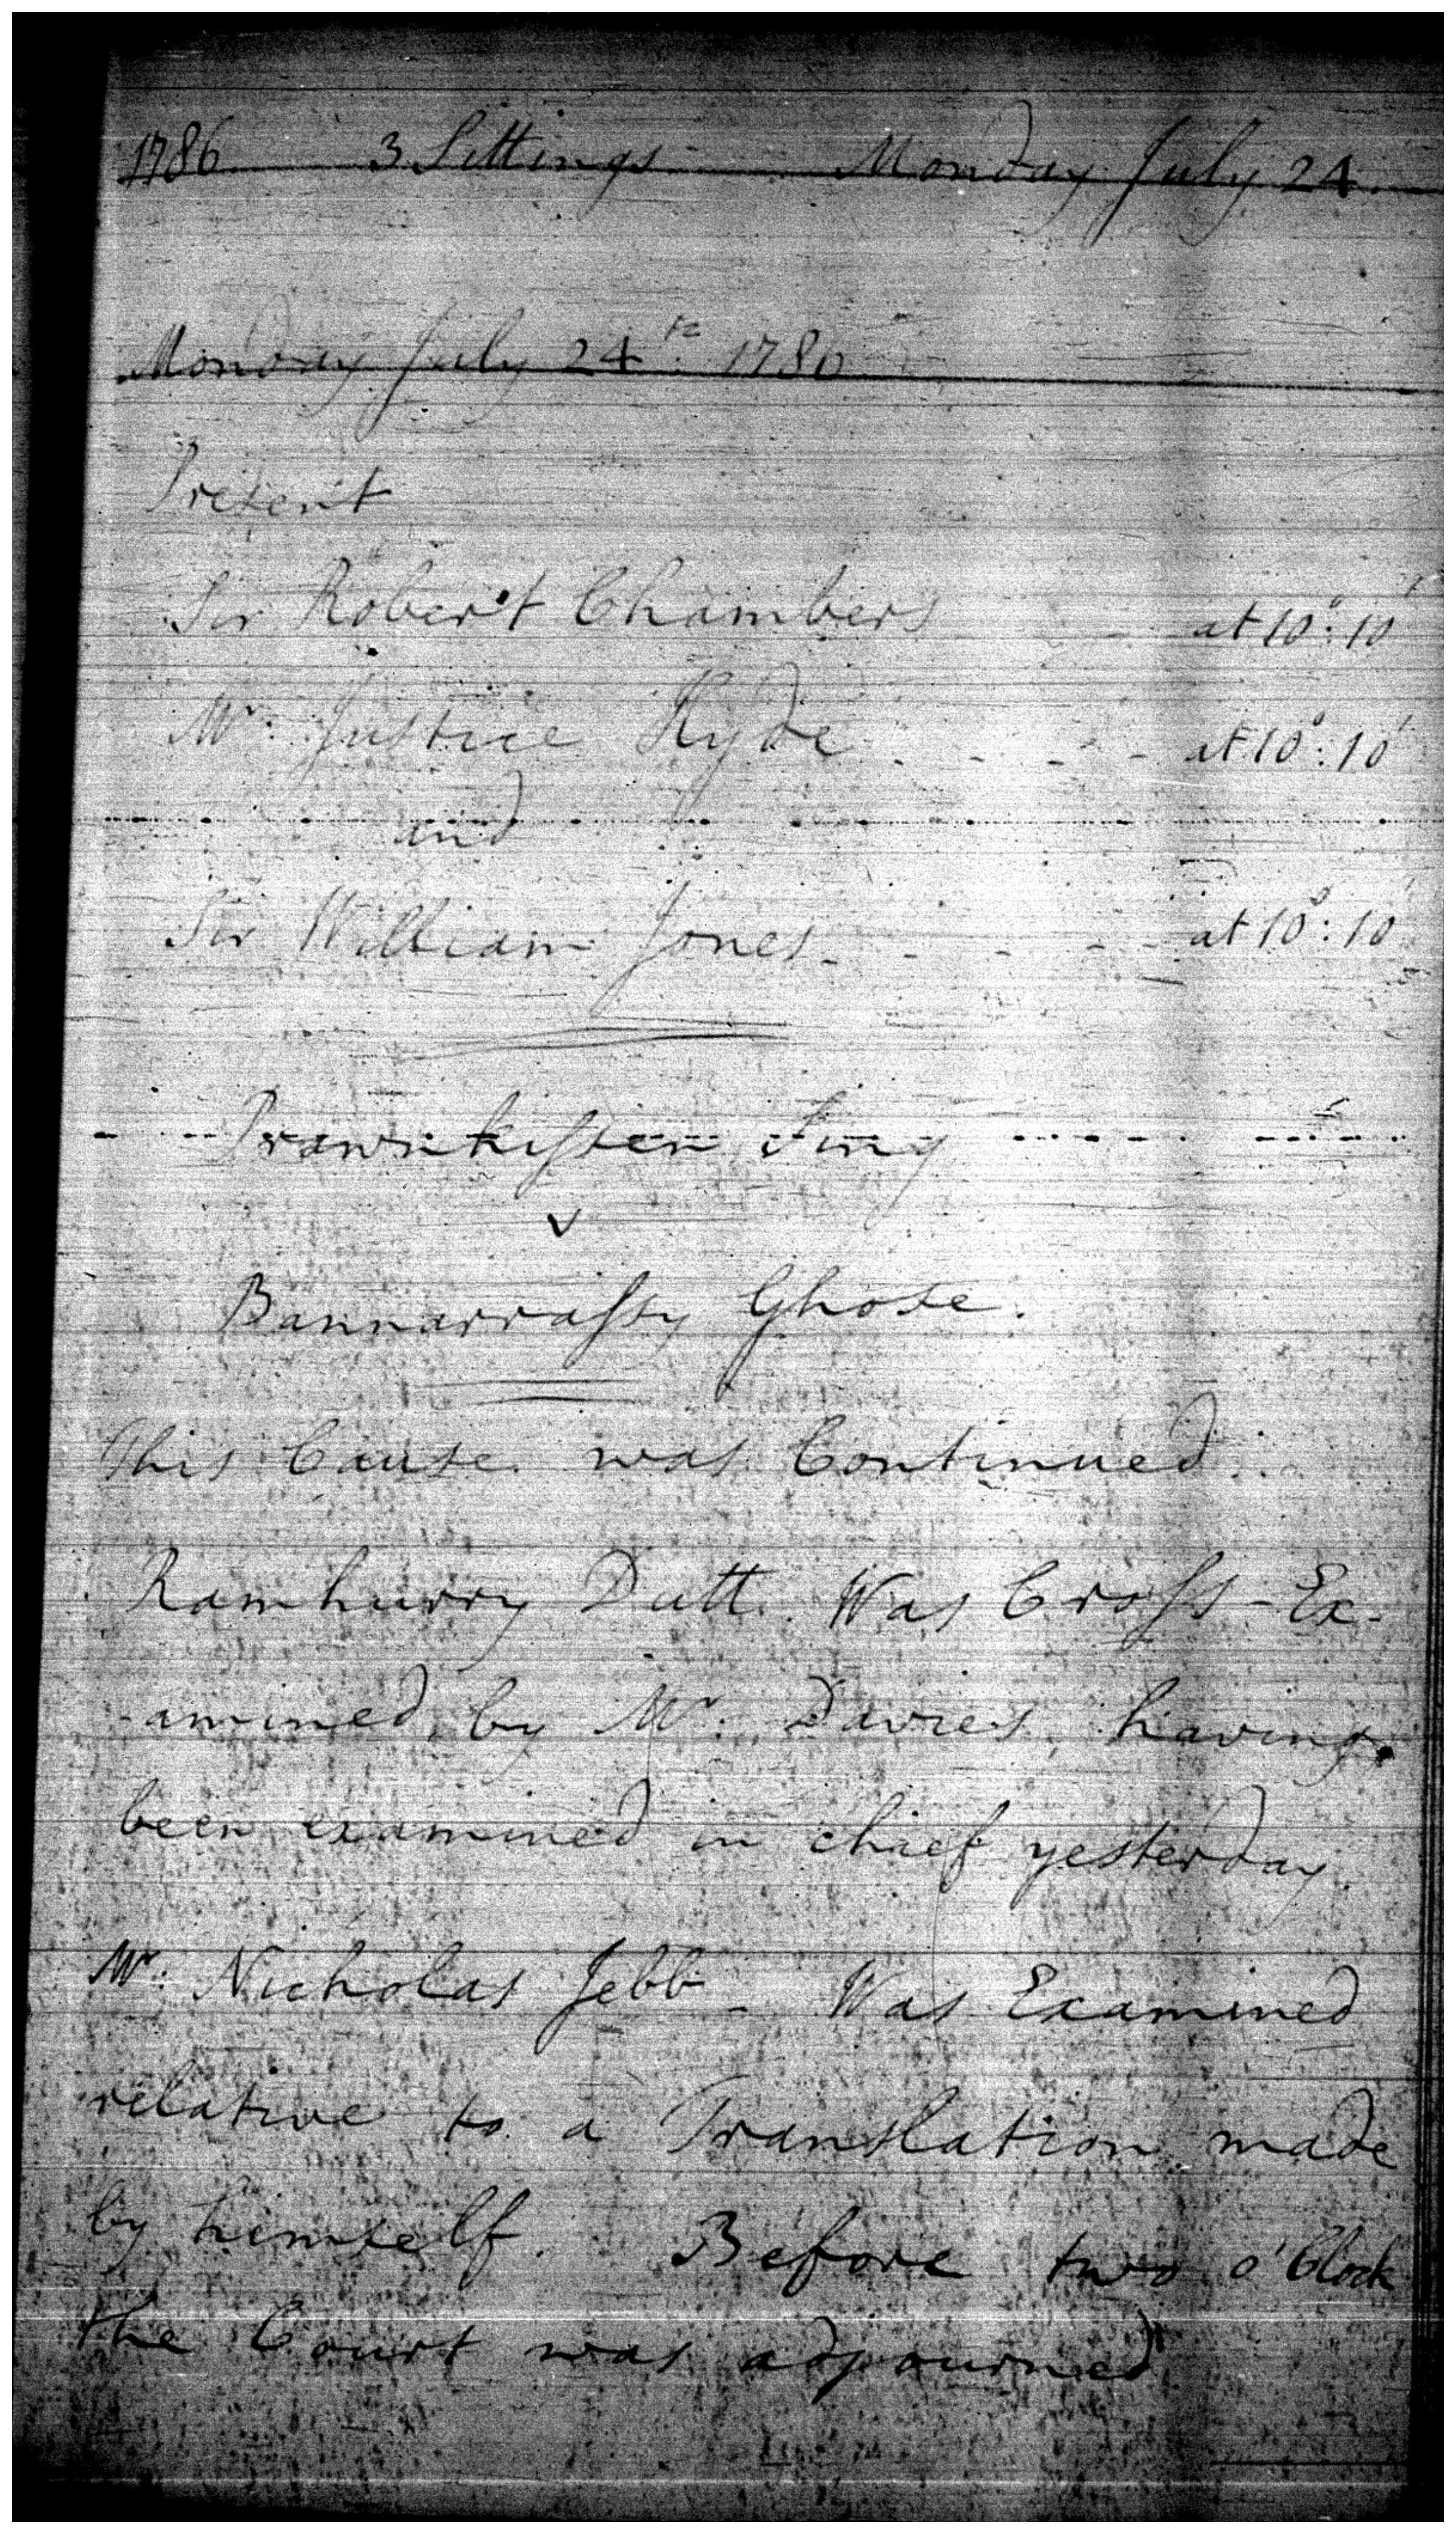 1786 3 Sittings Monday July 24.
Monday July 24th. 1786
Present
Sir Robert Chambers at 10°: 10'
Mr. Justice Hyde - - - - at 10°: 10'
and
Sir William Jones - - - - at 10°: 10'
Prawnkiſsen Sing
v
Bannarraſsy Ghose.
This Cause was Continued.
Ramhurry Dutt. Was Croſs-Ex-
-amined by Mr. Davies, having
been examined in chief yesterday
Mr. Nicholas Jebb - Was Examined
relative to a Translation made
by himself. Before two o'Clock
the Court was adjourned